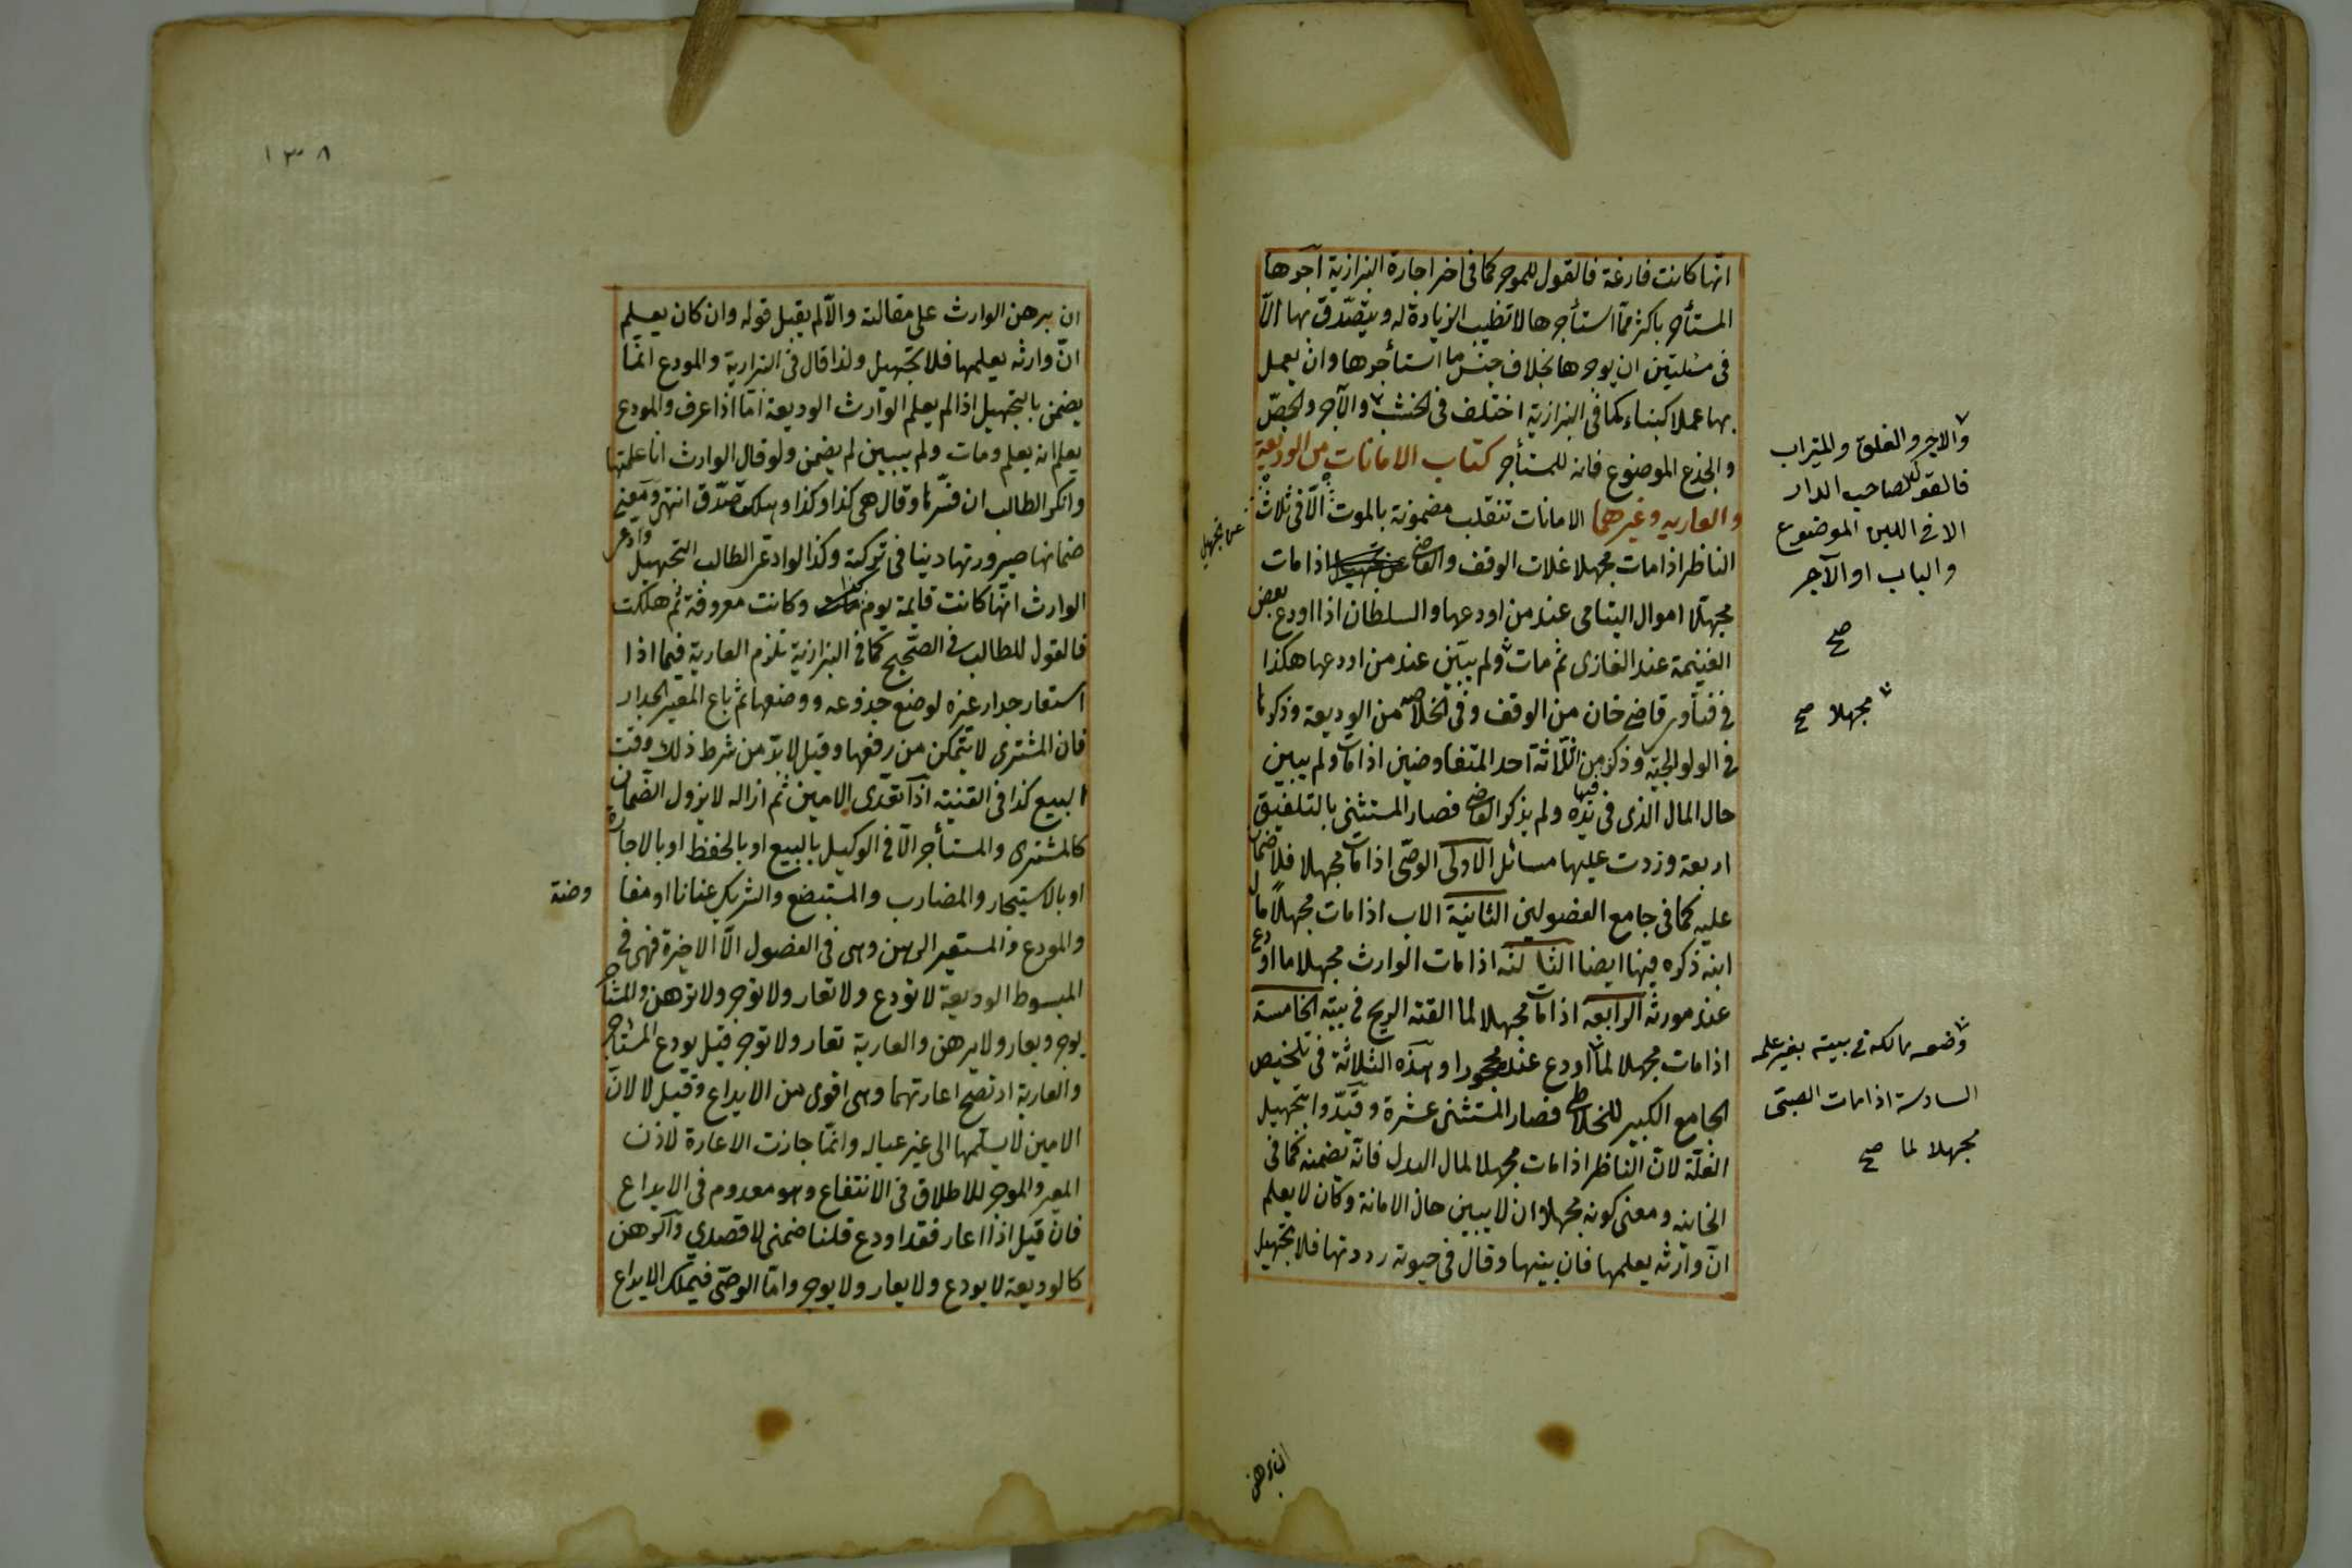 انها كانت فارغة فالقول للموجر كما فى اخر اجارة البزازية آجرها
المستأجر باكثر مما استأجرها لا تطيب الزيادة له ويتصدق بها الّا
فى مسئلتين ان يوجرها بخلاف جنس ما استأجرها وان يعمل
بها عملا كبناء كما فى البزازية اختلف فى الخشب والآجر والجصّ
والجذع الموضوع فانه للمستأجر كتاب الامانات من الوديعة
والعاريه وغيرهما الامانات تنقلب مضمونة بالموت الّا فى ثلاث
الناظر اذا مات مجهلا غلات الوقف والقاضى اذا مات
مجهلا اموال اليتامى عند من اودعها والسلطان اذا اودع بعض
الغنيمة عند الغازى ثم مات ولم يبيّن عند من اودعها هكذا
فى فتاوى قاضى خان من الوقف وفى الخلاصه من الوديعة وذكرها
فى الولوالجية وذكر من الثلاثة احد المتفاوضين اذا مات ولم يبين
حال المال الذى فى يده ولم يذكر القاضى فصار المستثنى بالتلفيق
اربعة وزدت عليها مسائل الاولى الوصّى اذا مات مجهلا فلا ضمان
عليه كما فى جامع الفصولين الثانية الاب اذا مات مجهلًا مال
ابنه ذكره فيها ايضا الثالثه اذا مات الوارث مجهلا ما اودع
عند مورثه الرابعه اذا مات مجهلا لما القته الريح فى بيته الخامسة
اذا مات مجهلا لما اودع عند محجورا وهذه الثلاثة فى تلخيص
الجامع الكبير للخلاطى فصار المستثنى عشرة وقيّدوا بتجهيل
الغلّة لانّ الناظر اذا مات مجهلا لمال البدل فانّه يضمنه كما فى
الخانيه ومعنى كونه مجهلا ان لا يبين حال الامانة وكان لا يعلم
انّ وارثه يعلمها فان بينها وقال فى حيوته رددتها فلا تجهيل
عن تجهيل
والاجر والغلق والميزاب
فالقول لصاحب الدار
الا فى اللبن الموضوع
والباب او الآجر
صح
مجهلا صح
وضعه مالكه فى بيته بغير علمه
السادسة اذا مات الصبّى
مجهلا لما صح
ان برهن
١٣٨
ان برهن الوارث على مقالته والّا لم يقبل قوله وان كان يعلم
انّ وارثه يعلمها فلا تجهيل ولذا قال فى البزازية والمودع انما
يضمن بالتجهيل اذا لم يعلم الوارث الوديعة امّا اذا عرف والمودع
يعلم انه يعلم ومات ولم يبين لم يضمن ولو قال الوارث انا علمتها
وانكر الطالب ان فسّرها وقال هى كذا وكذا وهلكت صدّق انتهى ومعنى
ضمانها صيرورتها دينا فى تركته وكذا لو ادعى الطالب التجهيل وادعى
الوارث انها كانت قايمة يوم مات وكانت معروفة ثم هلكت
فالقول للطالب فى الصّحيح كما فى البزازية تلزم العارية فيما اذا
استعار جدار غيره لوضع جذوعه ووضعها ثم باع المعير الجدار
فان المشترى لا يتمكن من رفعها وقيل لا بدّ من شرط ذلك وقت
البيع كذا فى القنية اذا تعدى الامين ثم ازاله لا يزول الضمان
كالمشترى والمستأجر الّا فى الوكيل بالبيع او بالحفظ او بالاجارة
او بالاستيجار والمضارب والمستبضع والشريك عنانا او مفا وضة
والمودع ومستعير الرهن وهى فى الفصول الّا الاخيرة فهى فى
المبسوط الوديعة لا تودع ولا تعار ولا توجر ولا ترهن والمستأجر
يوجر ويعار ولا يرهن والعارية تعار ولا توجر قيل يودع المستأجر
والعارية اذ تصح اعارتهما وهى اقوى من الايداع وقيل لا لانّ
الامين لا يسلمها الى غير عياله وانمّا جازت الاعارة لاذن
المعير والموجر للاطلاق فى الانتفاع وهو معدوم فى الايداع
فان قيل اذا اعار فقد اودع قلنا ضمنى لا قصدي والرهن
كالوديعة لا يودع ولا يعار ولا يوجر وامّا الوصّى فيملك الايداع